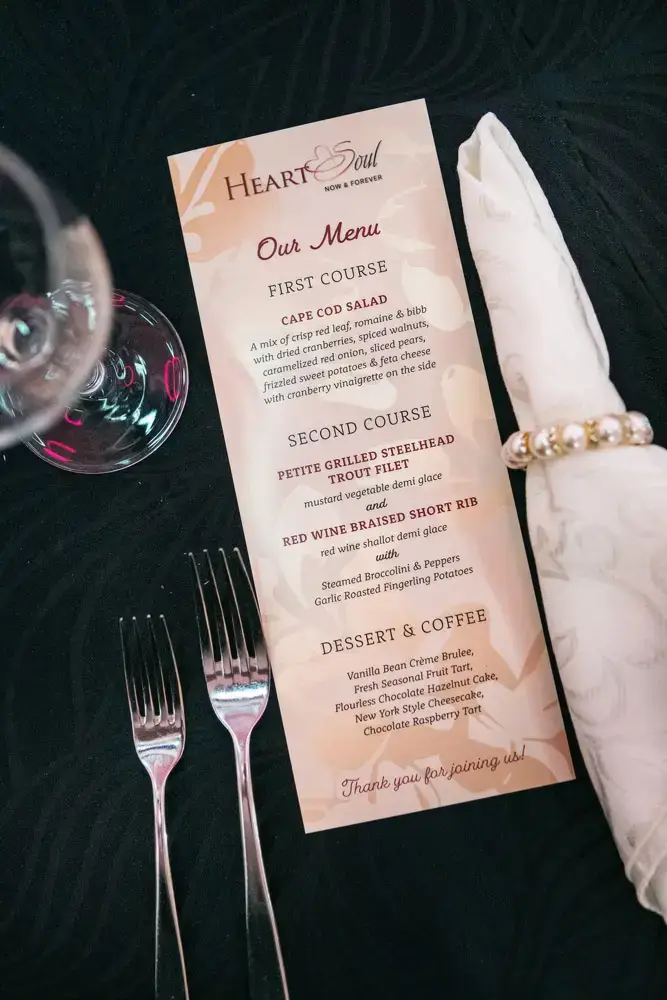 HEART & Soul
NOW & FOREVER
Our Menu
FIRST COURSE
CAPE COD SALAD
A mix of crisp red leaf, romaine & bibb
with dried cranberries, spiced walnuts,
caramelized red onion, sliced pears,
frizzled sweet potatoes & feta cheese
with cranberry vinaigrette on the side
SECOND COURSE
PETITE GRILLED STEELHEAD
TROUT FILET
mustard vegetable demi glace
and
RED WINE BRAISED SHORT RIB
red wine shallot demi glace
with
Steamed Broccolini & Peppers
Garlic Roasted Fingerling Potatoes
DESSERT & COFFEE
Vanilla Bean Crème Brulee,
Fresh Seasonal Fruit Tart,
Flourless Chocolate Hazelnut Cake,
New York Style Cheesecake,
Chocolate Raspberry Tart
Thank you for joining us!